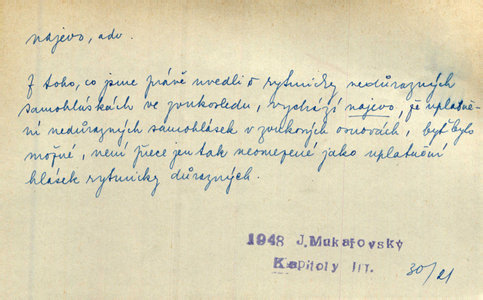 najevo, adv.
Z toho, co jsme právě uvedli o rytmicky nedůrazných
samohláskách ve zvukosledu, vychází najevo, že uplatně-
ní nedůrazných samohlásek v zvukových osnovách, byť bylo
možné, není přece jen tak neomezené jako uplatnění
hlásek rytmicky důrazných.
1948 J. Mukařovský
Kapitoly III.
30/21